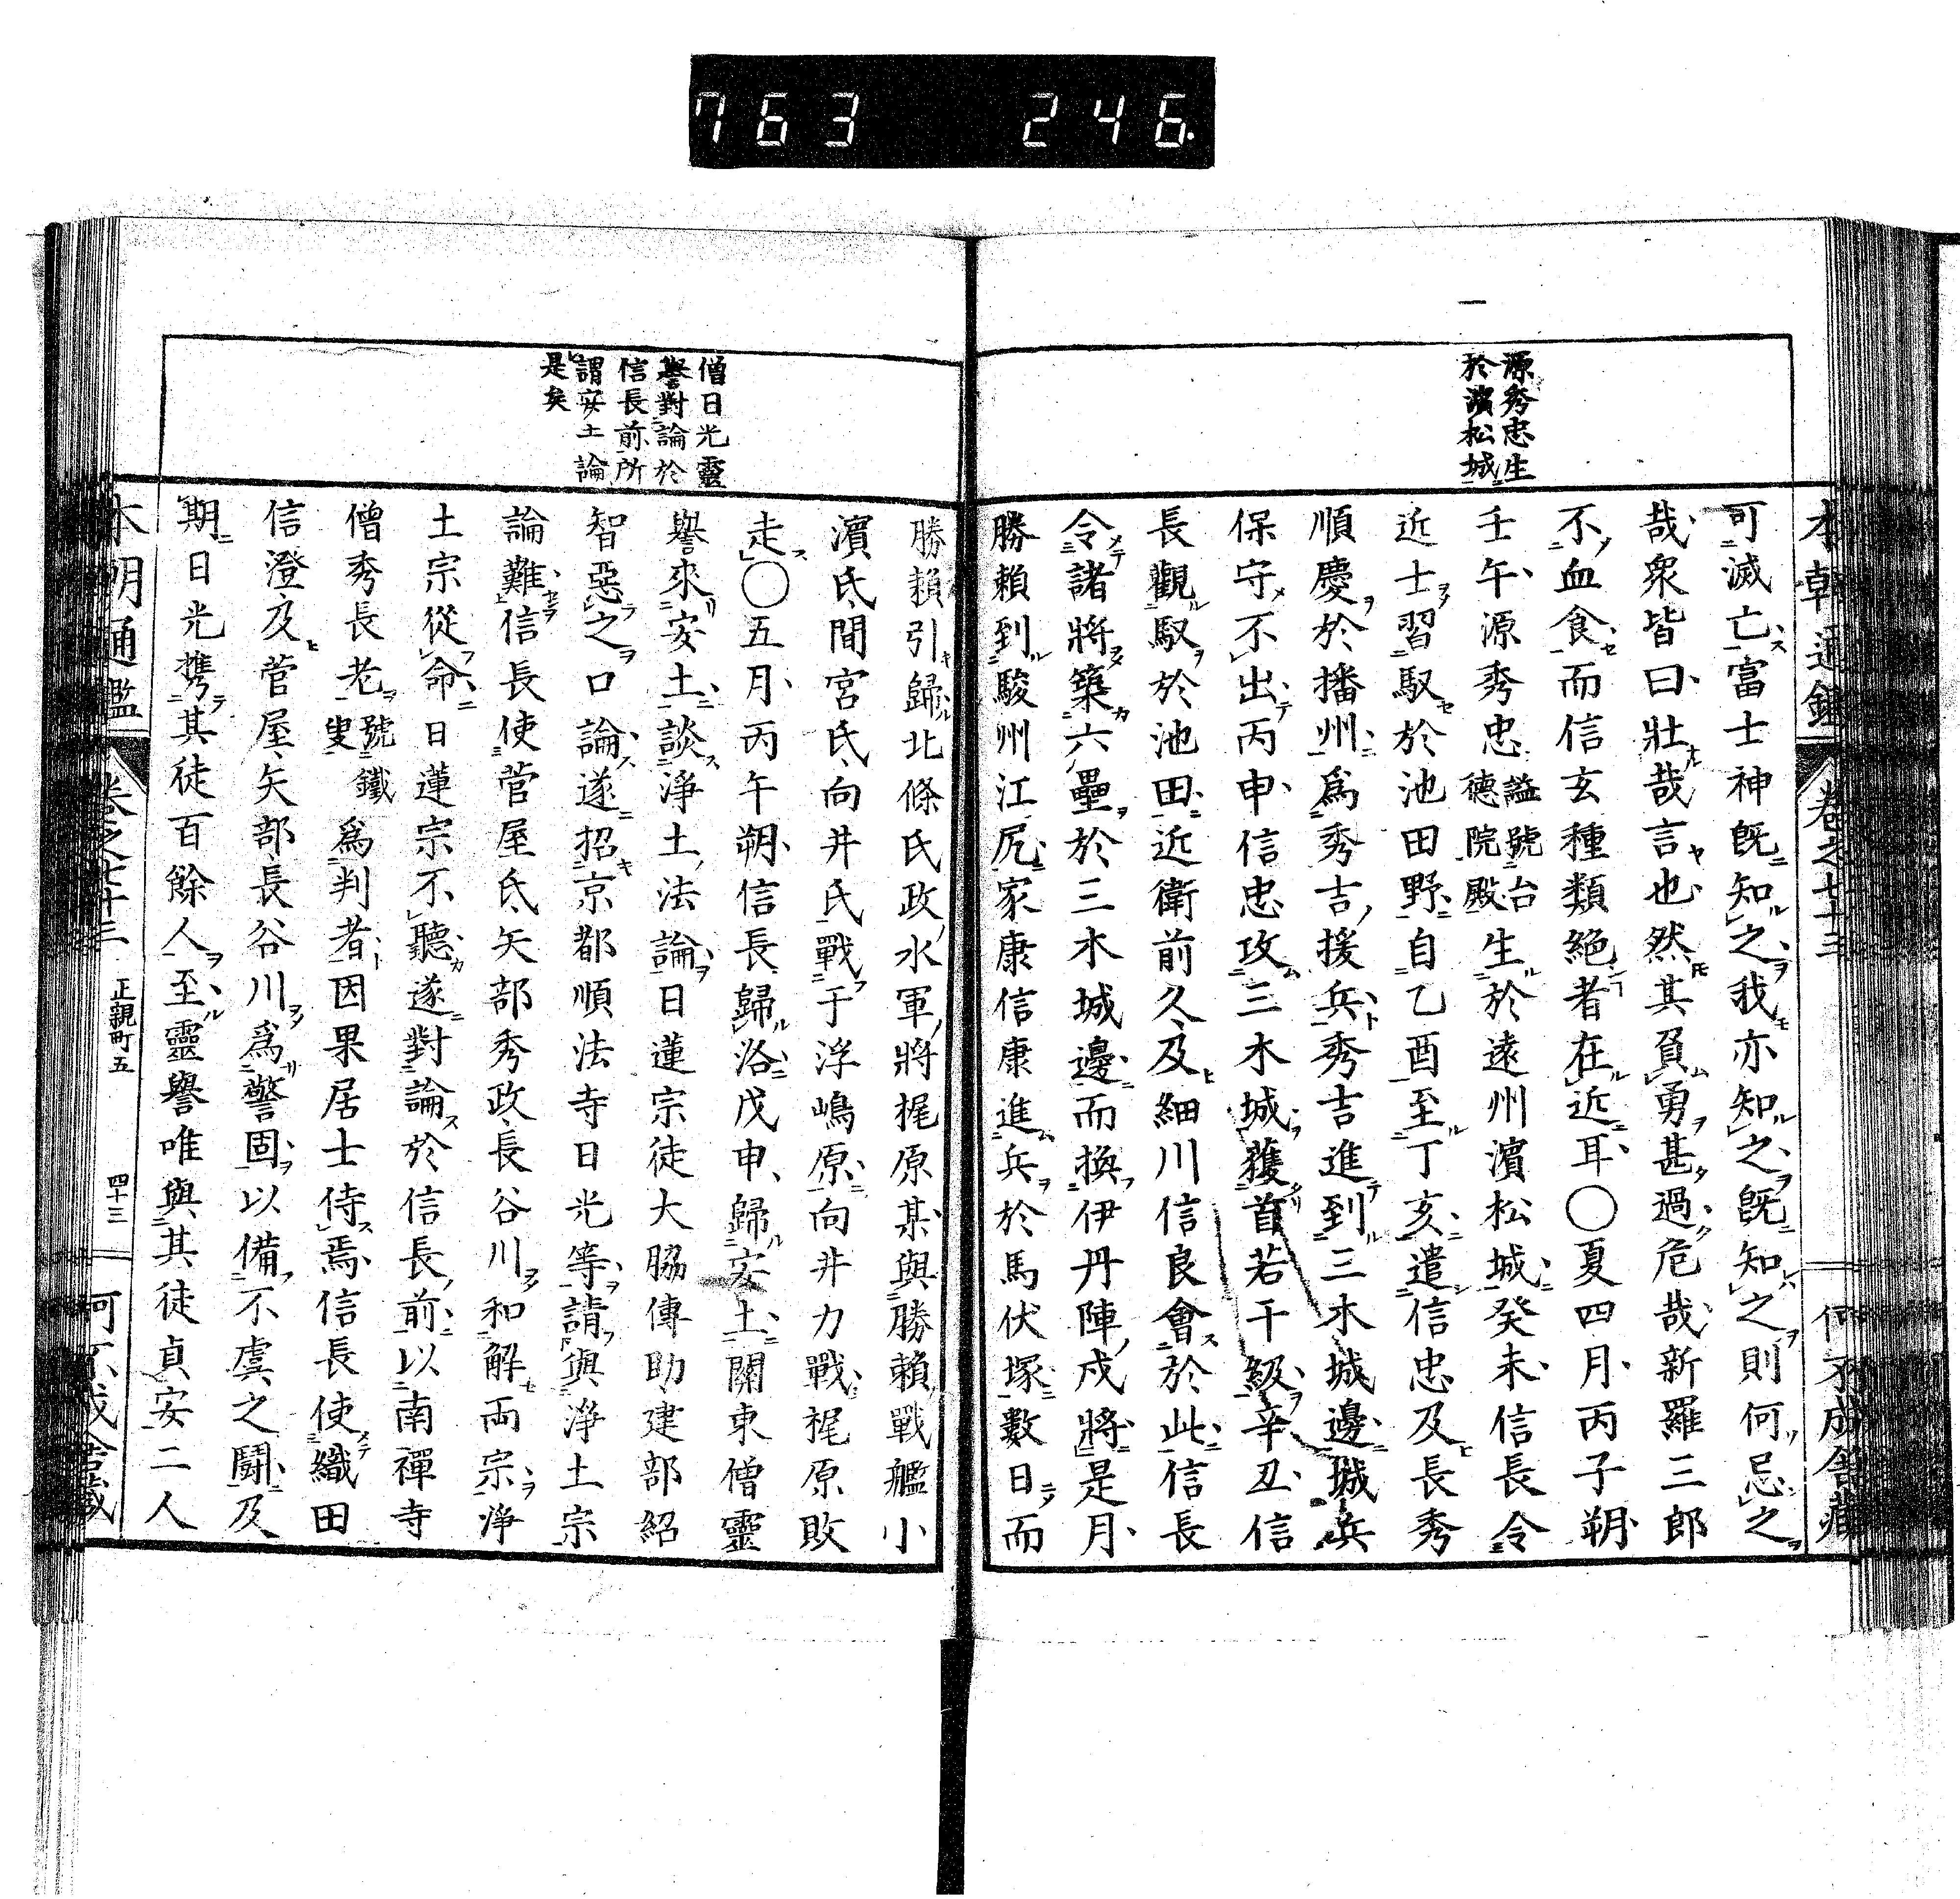 763 246.
本朝通鑑 卷之七十三 何不成舍藏
源秀忠生
於濱松城
可滅亡富士神既知之我亦知之既知之則何忌之
哉衆皆曰壯哉言也然其負勇甚過危哉新羅三郎
不血食而信玄種類絕者在近耳○夏四月丙子朔
壬午源秀忠謚號台德院殿生於遠州濱松城癸未信長令
近士習馭於池田野自乙酉至丁亥遣信忠及長秀
順慶於播州爲秀吉援兵秀吉進到三木城邊城兵
保守不出丙申信忠攻三木城獲首若干級辛丑信
長觀馭於池田近衛前久及細川信良會於此信長
令諸將築六壘於三木城邊而換伊丹陣戍將是月
勝賴到駿州江尻家康信康進兵於馬伏塚數日而
僧日光靈
譽對論於
信長前所
謂安土論
是矣
勝賴引歸北條氏政水軍將梶原某與勝賴戰艦小
濱氏間宮氏向井氏戰于浮嶋原向井力戰梶原敗
走○五月丙午朔信長歸洛戊申歸安土關東僧靈
譽來安土談淨土法論日蓮宗徒大脇傳助建部紹
智惡之口論遂招京都順法寺日光等請與淨土宗
論難信長使菅屋氏矢部秀政長谷川和解両宗淨
土宗從命日蓮宗不聽遂對論於信長前以南禪寺
僧秀長老號鐵叟爲判者因果居士侍焉信長使織田
信澄及菅屋矢部長谷川爲警固以備不虞之鬪及
期日光携其徒百餘人至靈譽唯與其徒貞安二人
本朝通鑑 卷之七十三 正親町五 四十三 何不成舍藏